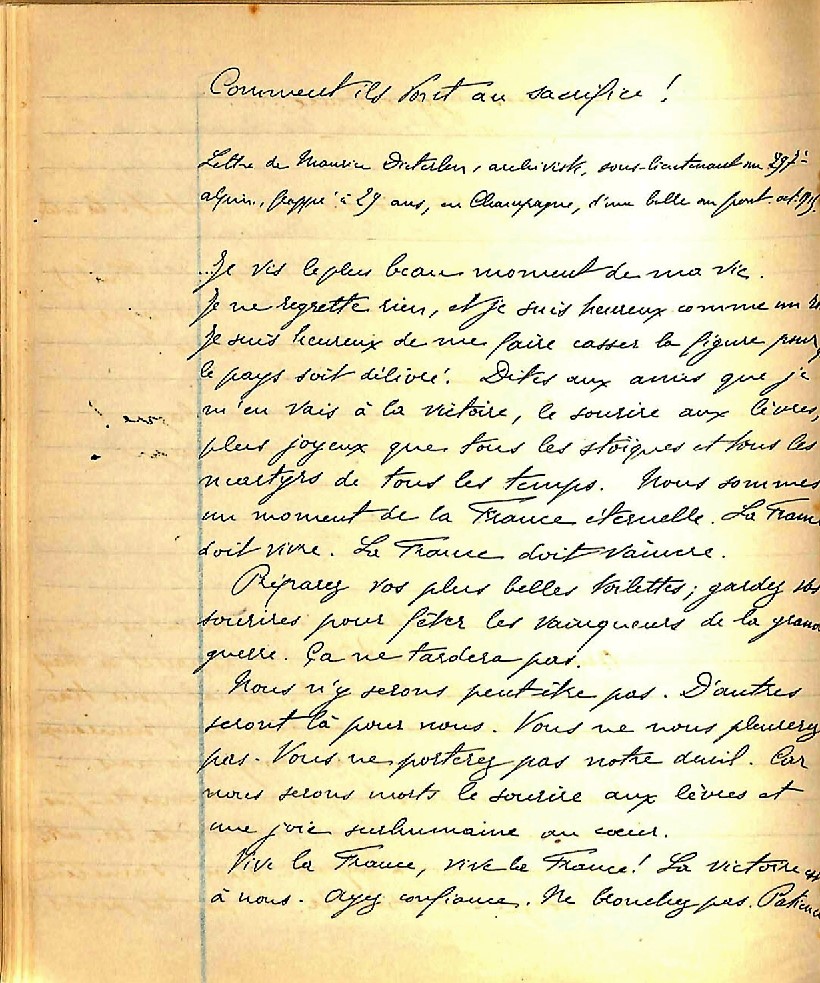 Comment ils vont au sacrifice !
Lettre de Maurice Dieterlen, archiviste, sous-lieutenant au 297e
alpin, frappé à 29 ans, en Champagne, d'une balle au front. oct. 1915.
..Je vis le plus beau moment de ma vie.
Je ne regrette rien, et je suis heureux comme un
Je suis heureux de me faire casser la figure pour
le pays soit délivré. Dites aux amis que je
m'en vais à la victoire, le sourire aux lèvres,
plus joyeux que tous les stoïques et tous les
martyrs de tous les temps. Nous sommes
un moment de la France éternelle. La Fran
doit vivre. La France doit vaincre.
Préparez vos plus belles toilettes ; gardez vos
sourires pour fêter les vainqueurs de la grand
guerre. Ça ne tardera pas.
Nous n'y serons peut-être pas. D'autres
seront là pour nous. Vous ne nous pleurerez
pas. Vous ne porterez pas notre deuil. Car
nous serons morts le sourire aux lèvres et
une joie surhumaine au cœur.
Vive la France, vive la France ! La victoire est
à nous. Ayez confiance. Ne bronchez pas. Patience